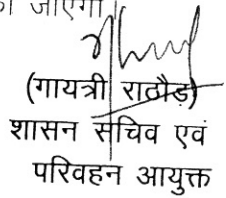 जाएगा
(गायत्री राठौड़)
शासन सचिव एवं
परिवहन आयुक्त